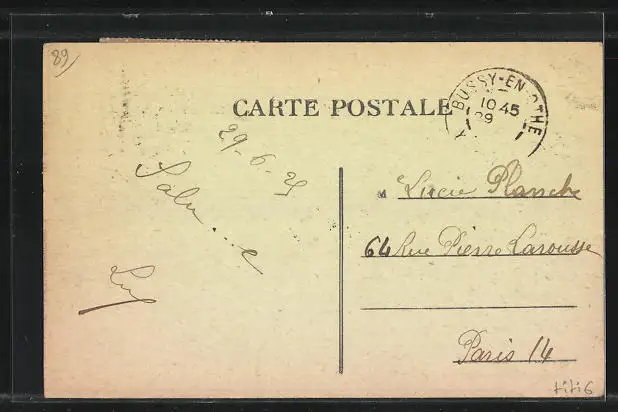 89
CARTE POSTALE
BUSSY-EN-OTHE
10 45
29
29-6-25
Salu...e
M Lucie Planche
64 Rue Pierre Larousse
Paris 14
titi6